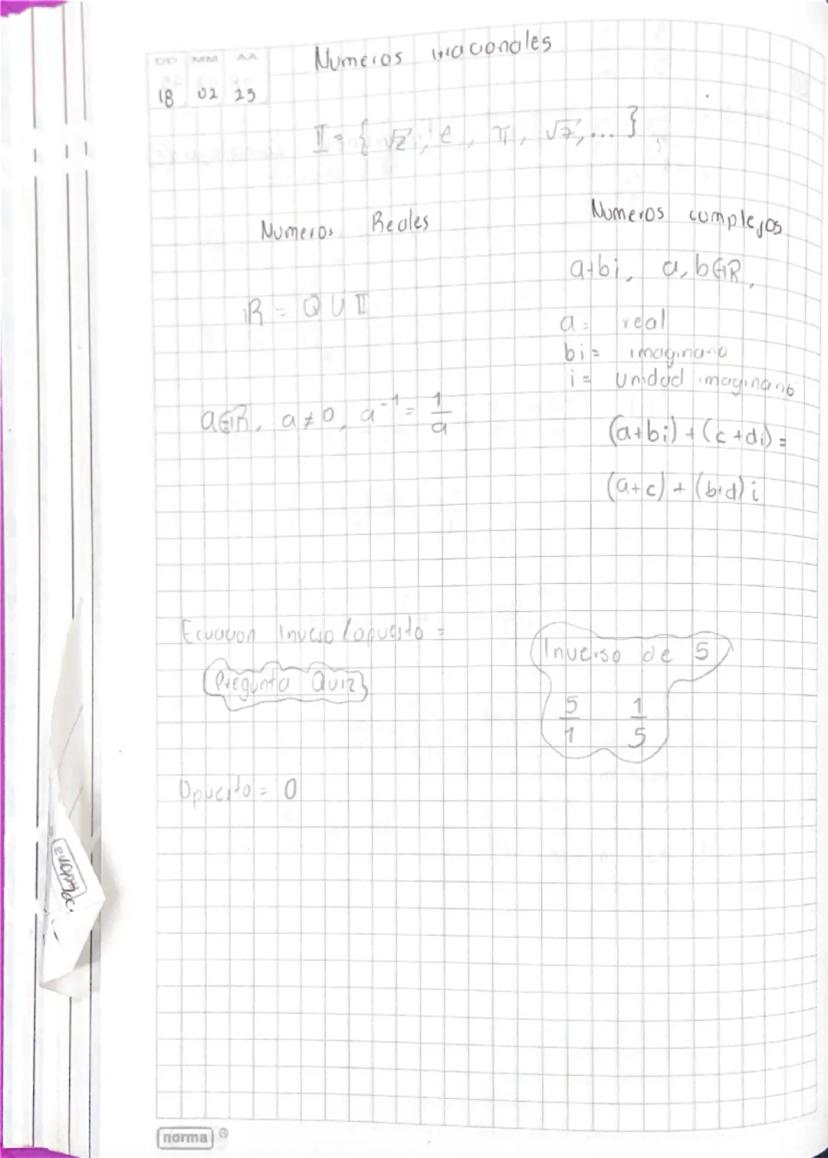 DD MM AA
18 02 25
Numeros irracionales
𝕀 = { √2, e, π, √7, ... }
Numeros Reales
ℝ = ℚ ∪ 𝕀
a∈ℝ, a ≠ 0, a⁻¹ = 1/a
Numeros complejos
a+bi, a, b∈ℝ,
a = real
bi = imaginario
i = unidad imaginario
(a+bi) + (c+di) =
(a+c) + (b+d)i
Ecuacion Inverso/opuesto =
Pregunta Quiz
Inverso de 5
5/1 1/5
Opuesto = 0
norma